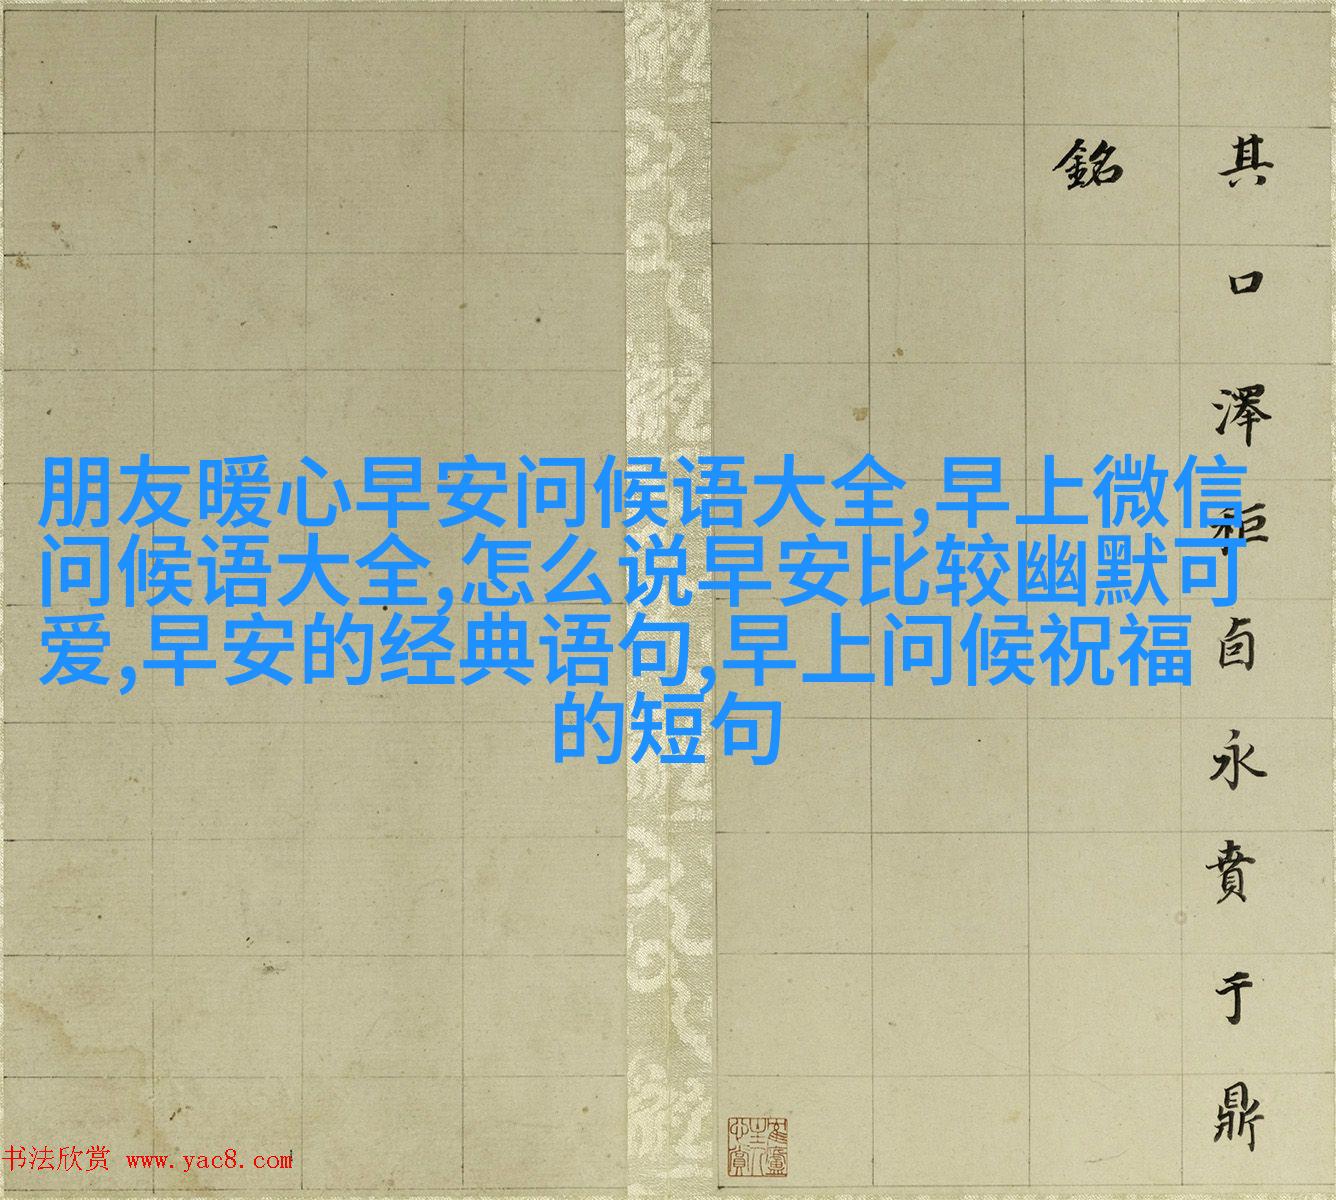 其口澤秬卣永賁于鼎
銘
朋友暖心早安问候语大全,早上微信
问候语大全,怎么说早安比较幽默可
爱,早安的经典语句,早上问候祝福
的短句
书法欣赏 www.yac8.com